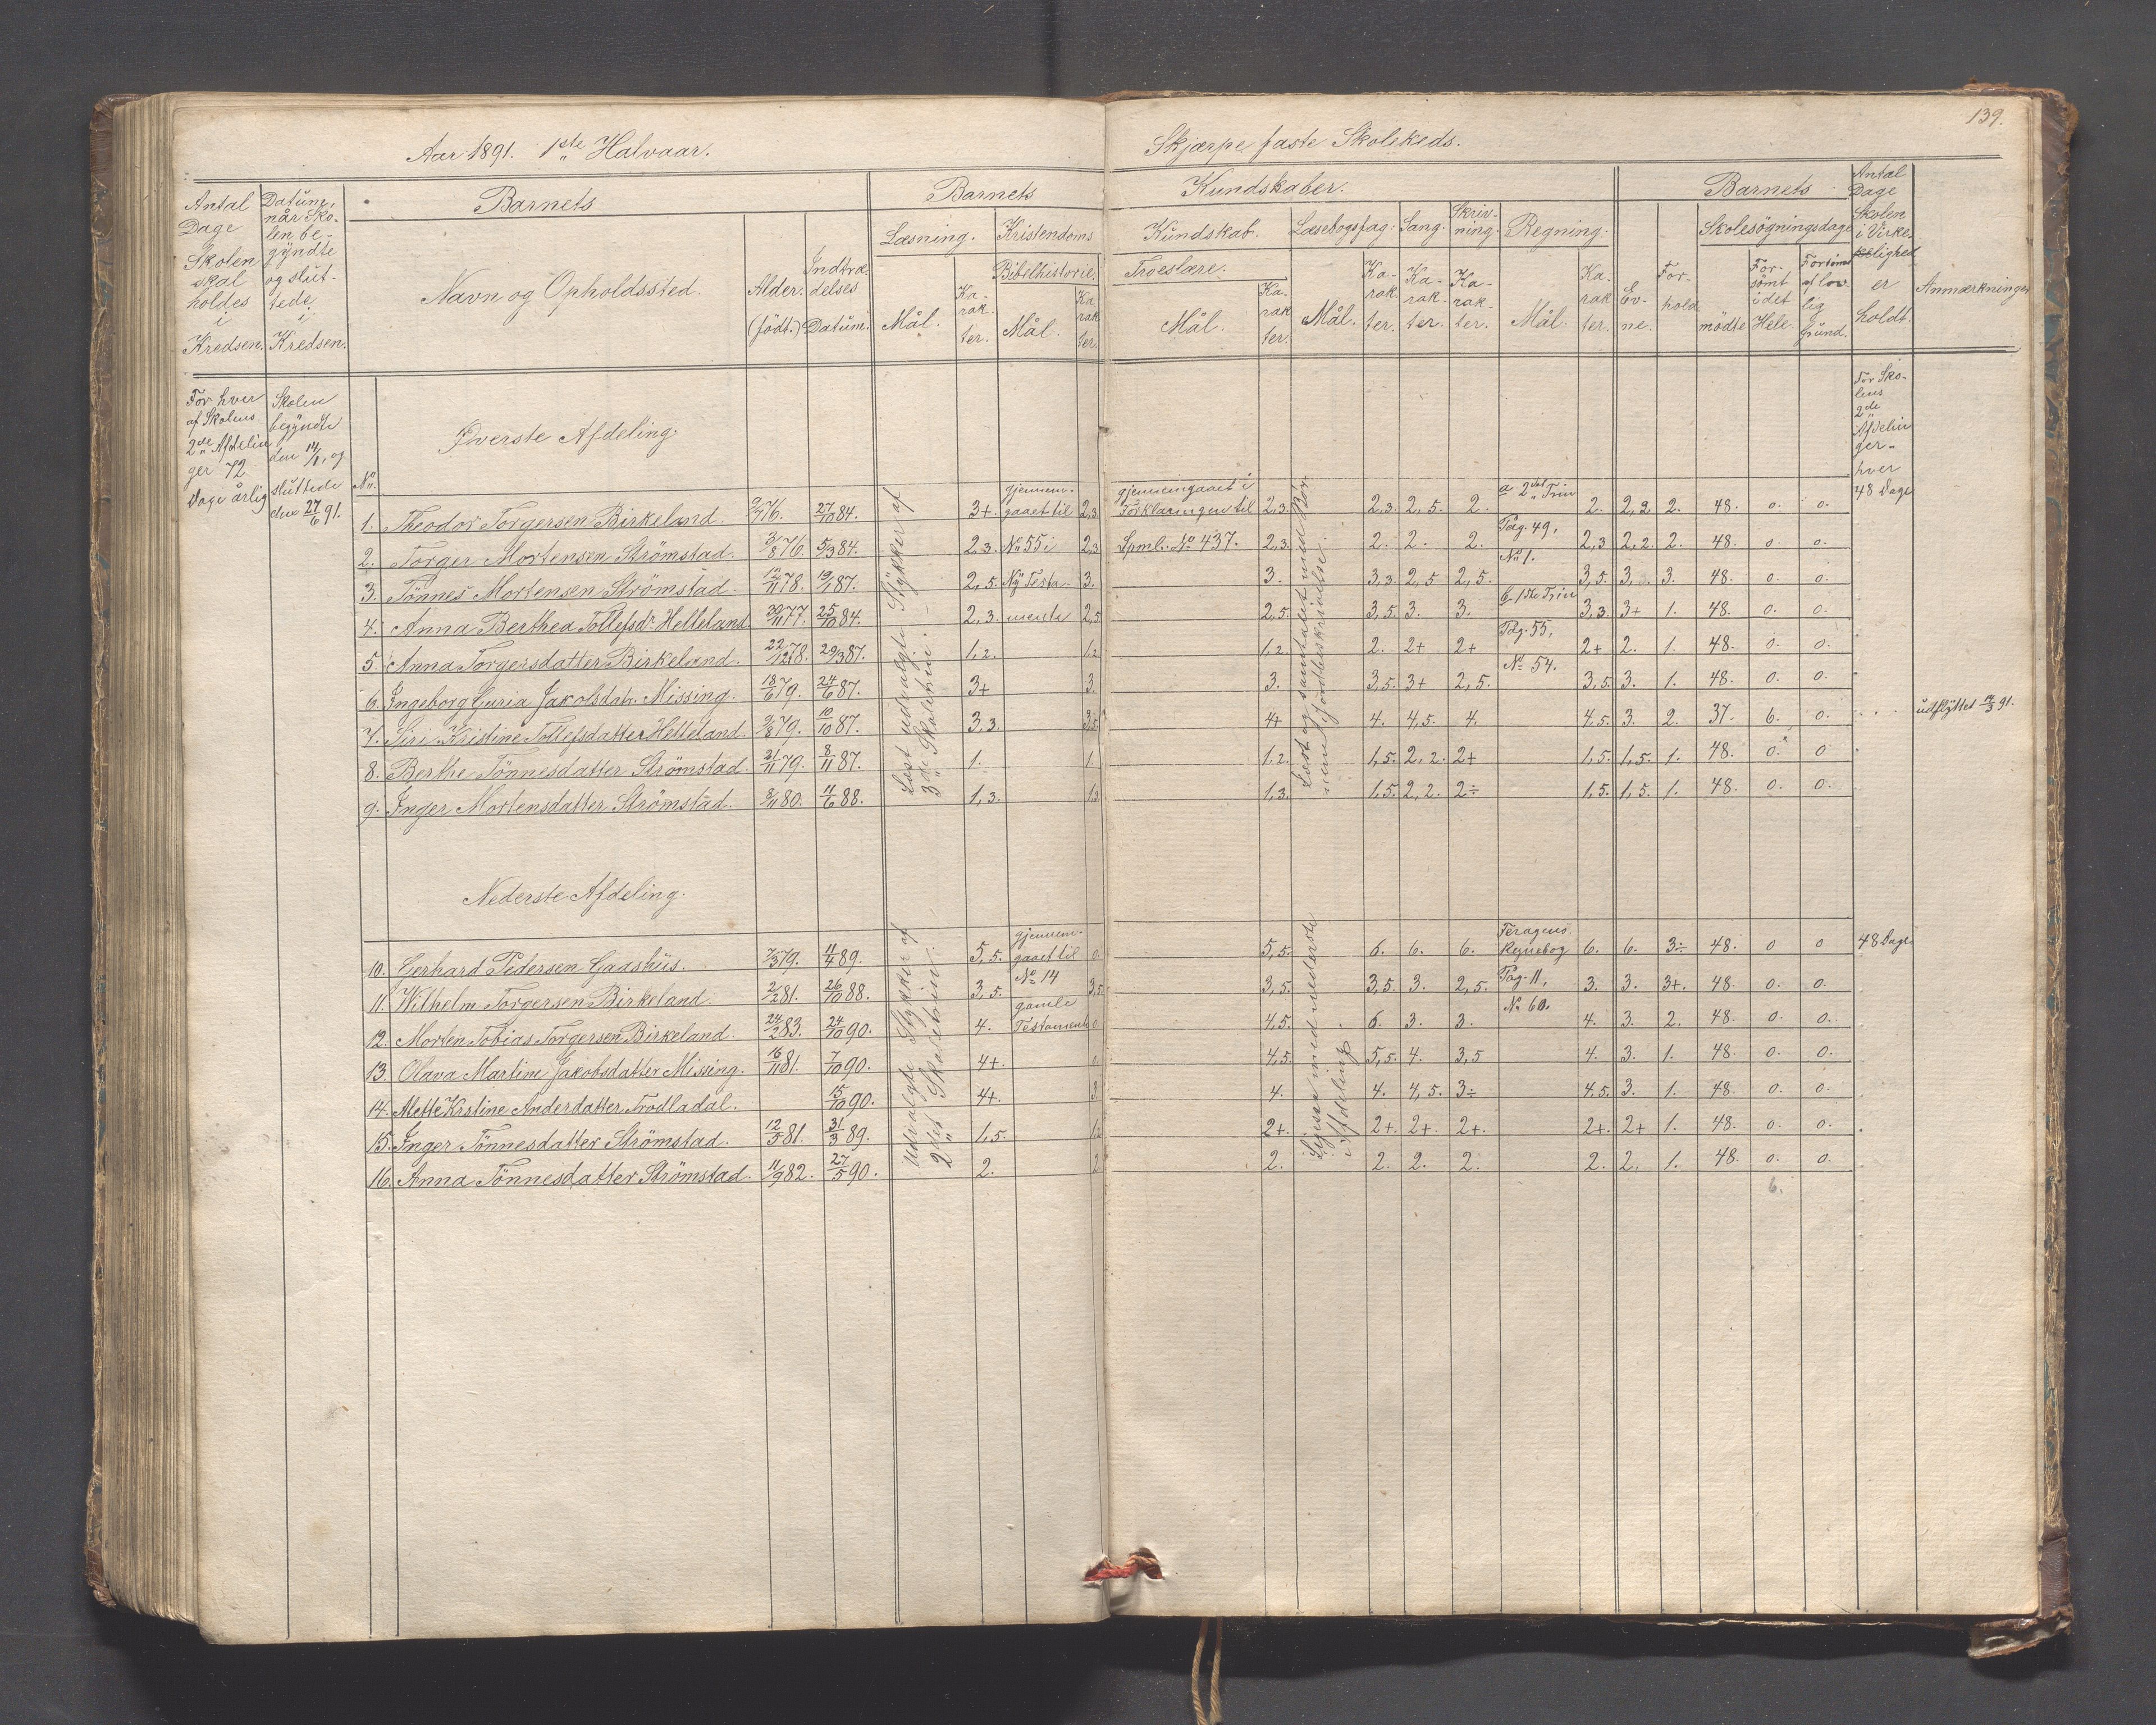 Aar 1891. 1ste Halvaar.
Skjærpe faste Skolekeds.
139.
Antal Dage Skolen skal holdes i Kredsen.
Datum, når Skolen begyndte og sluttede i Kredsen.
Barnets
Navn og Opholdssted.
Alder. (födt.)
Indtrædelses Datum.
Barnets
Læsning.
Mål.
Karakter.
Kristendoms
Bibelhistorie.
Mål.
Karakter
Kundskaber.
Kundskab.
Troeslære.
Mål.
Karakter.
Læsebogsfag.
Mål.
Karakter.
Sang.
Karakter.
Skrivning.
Karakter.
Regning.
Mål.
Karakter.
Barnets
Evne.
Forhold
Skolesögningsdage
mödte
Forsömt i det Hele.
Forsömt af lovlig Grund.
Antal Dage Skolen i Virkelighed er holdt.
Anmærkninger
For hver af Skolens 2de Afdelinger 72 Dage årlig
Skolen begyndte den 14/1, og sluttede den 27/6 91.
Øverste Afdeling.
For Skolens 2de Afdelinger hver 48 Dage
No.
Læst udvalgte Stykker af 3de Skoletrin.
gjennemgaaet til No 55 i Ny Testamente
gjennemgaaet i Forklaringen til Spml. No 437.
a 2det Trin Pag. 49, No 1.
b 1ste Trin Pag. 55, No 54.
1. Theodor Torgersen Birkeland. 9/7 76. 27/10 84. 3+. 2,3. 2,3. 2,3. 2,5. 2. 2. 2,2. 2. 48. 0. 0.
2. Torger Mortensen Strömstad. 3/8 76. 5/3 84. 2,3. 2,3 2,3. 2. 2. 2. 2,3 2,2. 2. 48. 0. 0.
3. Tönnes Mortensen Strömstad 12/11 78. 19/1 87. 2,5. 3. 3. 3,3. 2,5 2,5. 3,5. 3. 3. 48. 0. 0.
4. Anna Berthea Tollefsdr. Helleland 30/11 77. 25/10 84. 2,3. 2,5 2,5. 3,5. 3. 3. 3,3. 3+ 1. 48. 0. 0.
5. Anna Torgersdatter Birkeland. 22/12 78. 29/3 87. 1,2. 1,2 1,2. 2. 2+ 2+ 2+ 2. 1. 48. 0. 0.
6. Ingeborg Guria Jakobsdtr. Missing. 18/6 79. 24/6 87. 3+ 3. 3. 3,5. 3+ 2,5. 3,5. 3. 1. 48. 0. 0.
7. Siri Kristine Tollefsdatter Helleland. 9/8 79. 10/10 87. 3,3. 3,5 4+ 4. 4,5. 4. 4,5. 3. 2. 37. 6. 0. udflyttet 14/3 91.
8. Berthe Tönnesdatter Strömstad. 21/11 79. 8/11 87. 1. 1 1,2. 1,5. 2,2. 2+ 1,5. 1,5. 1. 48. 0. 0
9. Inger Mortensdatter Strömstad. 8/11 80. 11/6 88. 1,3. 1,3 1,3. 1,5. 2,2. 2÷ 1,5. 1,5. 1. 48. 0. 0.
Nederste Afdeling.
udvalgte Stykker af 2det Skoletrin.
gjennemgaaet til No 14 gamle Testamente
Ligesaa med nederste Afdeling
Regnebog Pag. 11, No 60.
10. Gerhard Pedersen Gaashus. 7/3 79. 11/4 89. 5,5. 0 5,5. 6. 6. 6. 6. 6. 3÷ 48. 0 0 48 Dage
11. Wilhelm Torgersen Birkeland. 2/2 81. 26/10 88. 3,5. 3,5 3,5. 3,5. 3. 2,5. 3. 3. 3+. 48. 0. 0.
12. Morten Tobias Torgersen Birkeland. 24/2 83. 24/10 90. 4. 0 4,5. 6. 3. 3. 4. 3. 2. 48. 0. 0.
13. Olava Martine Jakobsdatter Missing. 16/11 81. 7/10 90. 4+. 0 4,5. 5,5. 4. 3,5 4. 3. 1. 48. 0. 0.
14. Mette Krstine Anderdatter Trodladal. 15/10 90. 4+. 3. 4. 4. 4,5. 3÷ 4,5. 3. 1. 48. 0. 0.
15. Inger Tönnesdatter Strömstad. 12/5 81. 31/3 89. 1,5. 1,2 2+. 2+. 2+. 2+. 2+. 2+ 1. 48. 0. 0.
16. Anna Tönnesdatter Strömstad. 11/9 82. 27/5 90. 2. 2 2. 2. 2. 2. 2. 2. 1. 48. 0. 0.
6.